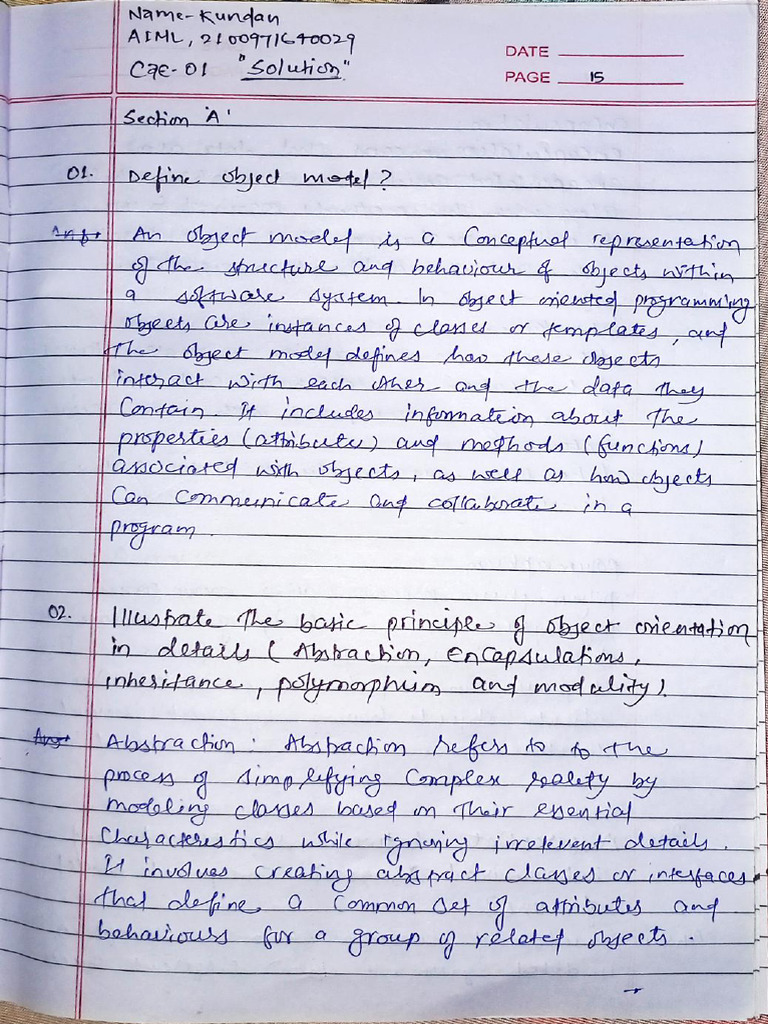 Name- Kundan
AIML, 2100971640029
Cae-01 "Solution"
DATE
PAGE 15
Section 'A'
01. Define object model?
Ans- An object model is a Conceptual representation
of the structure and behaviour of objects within
a software system. In object oriented programming
objects are instances of classes or templates, and
the object model defines how these objects
interact with each other and the data they
Contain. It includes information about the
properties (attributes) and methods (functions)
associated with objects, as well as how objects
Can communicate and collaborate in a
program.
02. Illustrate the basic principle of object orientation
in details (Abstraction, Encapsulations,
inheritance, polymorphism and modality).
Ans- Abstraction: Abstraction refers to to the
process of simplifying Complex reality by
modeling classes based on their essential
Characteristics while ignoring irrelevent details.
It involves creating abstract classes or interfaces
that define a Common set of attributes and
behaviours for a group of related objects.